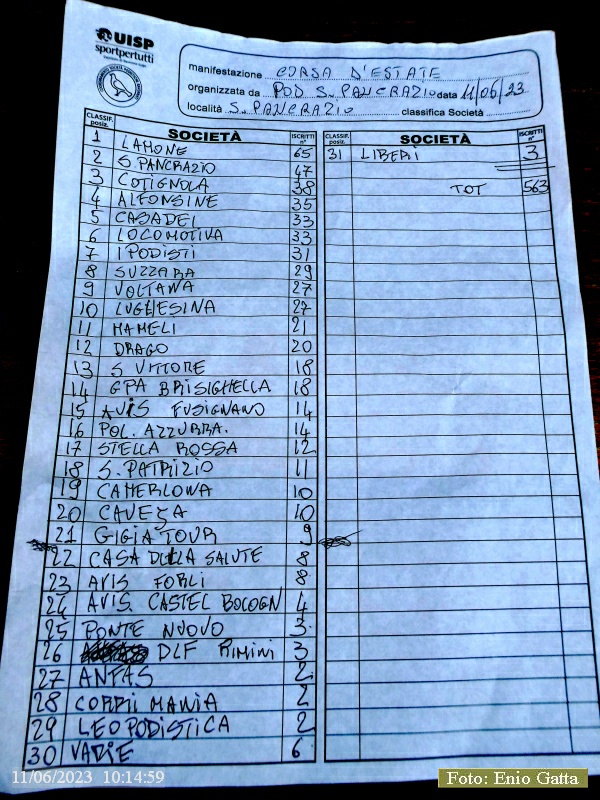 UISP
sportpertutti
manifestazione CORSA D'ESTATE
organizzata da POD S. PANCRAZIO data 11/06/23
località S. PANCRAZIO classifica Società
CLASSIF. posiz. SOCIETÀ ISCRITTI n° CLASSIF. posiz. SOCIETÀ ISCRITTI n°
1 LAMONE 65 31 LIBERI 3
2 S. PANCRAZIO 47
3 COTIGNOLA 38 TOT 563
4 ALFONSINE 35
5 CASADEI 33
6 LOCOMOTIVA 33
7 I PODISTI 31
8 SUZZARA 29
9 VOLTANA 27
10 LUGHESINA 27
11 MAMELI 21
12 DRAGO 20
13 S VITTORE 18
14 GPA BRISIGHELLA 18
15 AVIS FUSIGNANO 14
16 POL. AZZURRA. 14
17 STELLA ROSSA 12
18 S. PATRIZIO 11
19 CAMERLONA 10
20 CAVEJA 10
21 GIGIA TOUR 9
22 CASA DELLA SALUTE 8
23 AVIS FORLI 8
24 AVIS CASTEL BOLOGN 4
25 PONTE NUOVO 3
26 DLF RIMINI 3
27 ANFAS 2
28 CORRI MANIA 2
29 LEOPODISTICA 2
30 VARIE 6
11/06/2023 10:14:59
Foto: Enio Gatta